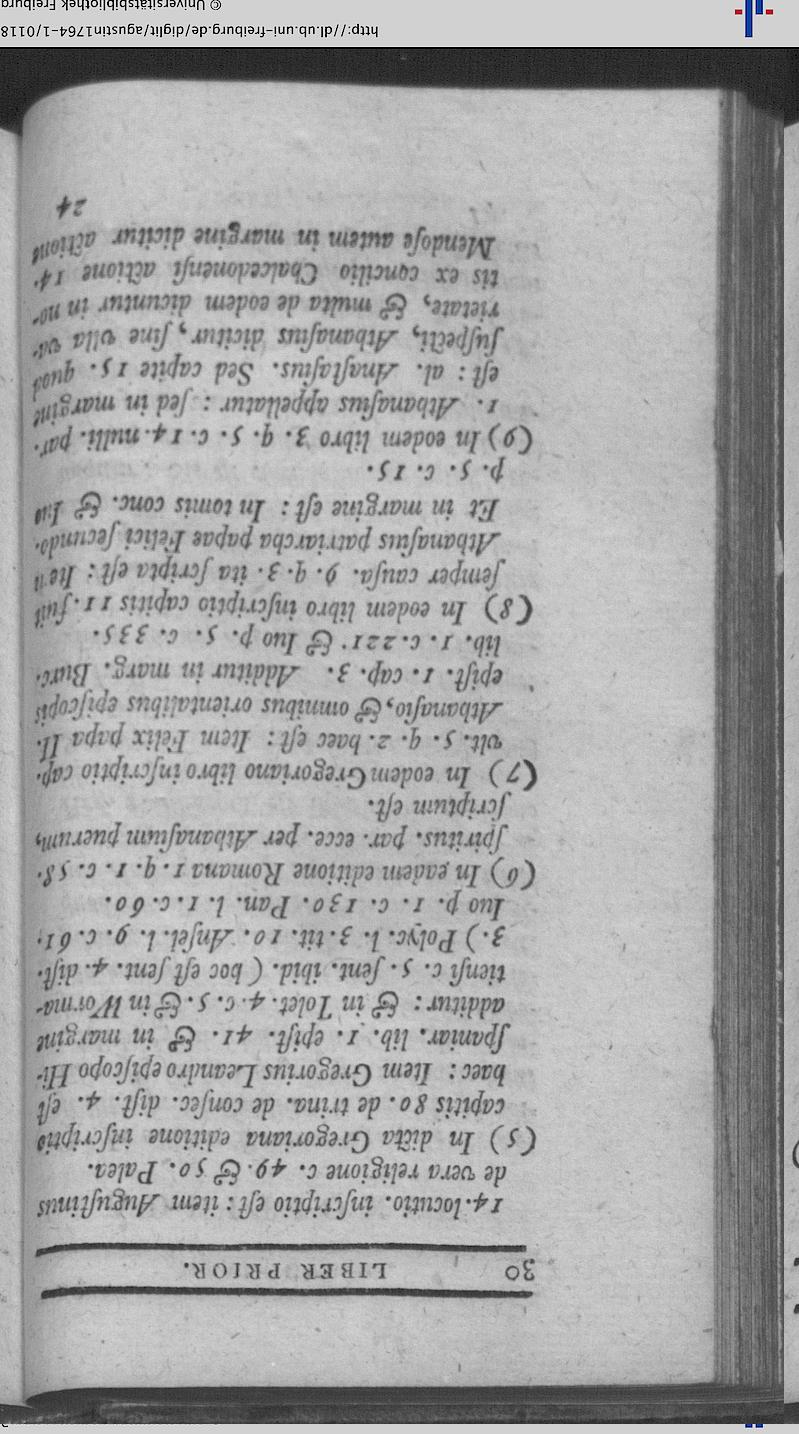 30 LIBER PRIOR.
14. locutio. inſcriptio eſt: item Auguſtinus
de vera religione c. 49. & 50. Palea.
(5) In dicta Gregoriana editione inſcriptio
capitis 80. de trina. de conſec. diſt. 4. eſt
haec: Item Gregorius Leandro epiſcopo Hi-
ſpaniar. lib. 1. epiſt. 41. & in margine
additur: & in Tolet. 4. c. 5. & in Worma-
tienſi c. 5. ſent. ibid. (hoc eſt ſent. 4. diſt.
3.) Polyc. l. 3. tit. 10. Anſel. l. 9. c. 61.
Iuo p. 1. c. 130. Pan. l. 1. c. 60.
(6) In eadem editione Romana 1. q. 1. c. 58.
ſpiritus. par. ecce. per Athanaſium puerum,
ſcriptum eſt.
(7) In eodem Gregoriano libro inſcriptio cap.
vlt. 5. q. 2. haec eſt: Item Felix papa II.
Athanaſio, & omnibus orientalibus epiſcopis
epiſt. 1. cap. 3. Additur in marg. Burc.
lib. 1. c. 221. & Iuo p. 5. c. 335.
(8) In eodem libro inſcriptio capitis 11. fuit
ſemper cauſa. 9. q. 3. ita ſcripta eſt: Item
Athanaſius patriarcha papae Felici ſecundo.
Et in margine eſt: In tomis conc. & Iuo
p. 5. c. 15.
(9) In eodem libro 3. q. 5. c. 14. nulli. par.
1. Athanaſius appellatur: ſed in margine
eſt: al. Anaſtaſius. Sed capite 15. quod
ſuſpecti, Athanaſius dicitur, ſine vlla va-
rietate, & multa de eodem dicuntur in no-
tis ex concilio Chalcedonenſi actione 14.
Mendoſe autem in margine dicitur actione
24
http://dl.ub.uni-freiburg.de/diglit/agustin1764-1/0118
© Universitätsbibliothek Freiburg